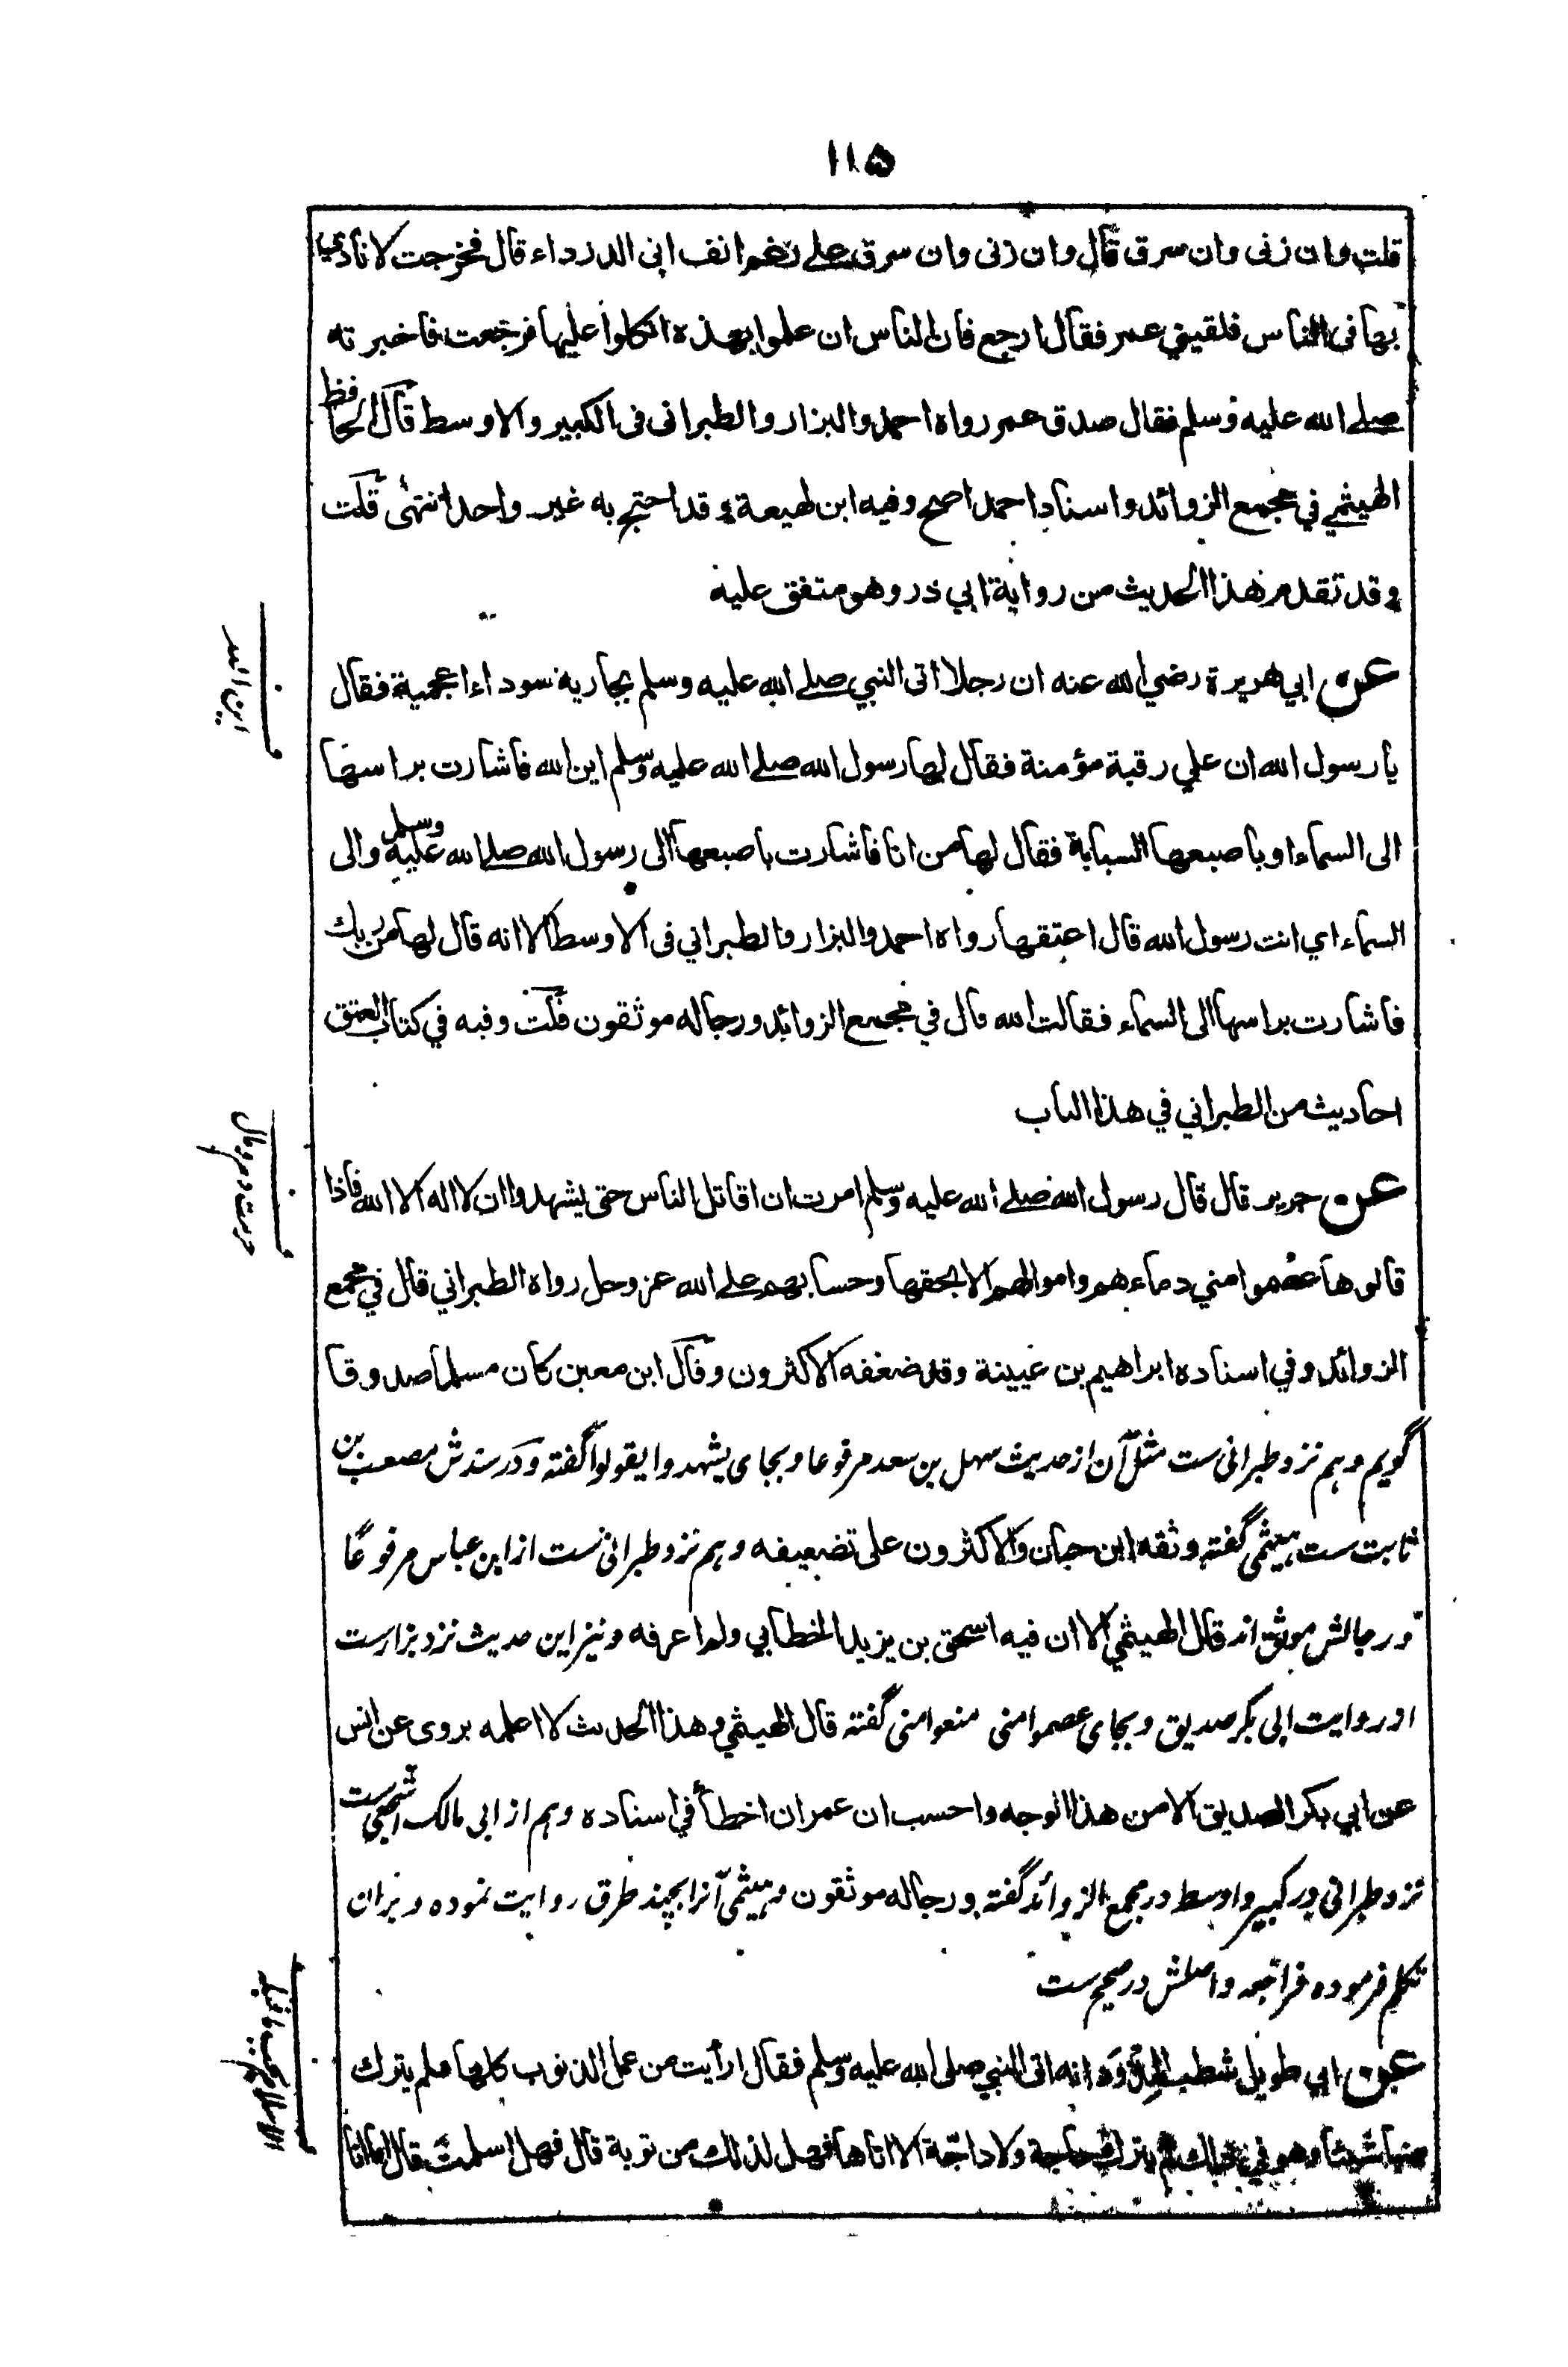 ۱۱۵
قلت وان زنى وان سرق قال وان زنى وان سرق على رغم انف ابى الدرداء قال فخرجت لانادي
بها فى الناس فلقيني عمر فقال ارجع فان الناس ان علموا بهذه اتكلوا عليها فرجعت فاخبرته
صلے الله عليه وسلم فقال صدق عمر رواه احمد والبزار والطبرانى فى الكبير والاوسط قال الحافظ
الهيثمي في مجمع الزوائد واسناد احمد اصح وفيه ابن لهيعة وقد احتج به غير واحد انتهى قلت
وقد تقدم هذا الحديث من رواية ابي ذر وهو متفق عليه
اين الله
عن ابي هريرة رضي الله عنه ان رجلا اتى النبي صلے الله عليه وسلم بجارية سوداء اعجمية فقال
يا رسول الله ان علي رقبة مؤمنة فقال لها رسول الله صلے الله عليه وسلم اين الله فاشارت براسها
الى السماء او باصبعها السبابة فقال لها من انا فاشارت باصبعها الى رسول الله صلے الله عليه وسلم والى
السماء اي انت رسول الله قال اعتقها رواه احمد والبزار والطبراني فى الاوسط الا انه قال لها من ربك
فاشارت براسها الى السماء فقالت الله قال في مجمع الزوائد ورجاله موثقون قلت وفيه في كتاب العتق
احاديث من الطبراني في هذا الباب
حرمت دم و مال
عن جرير قال قال رسول الله صلے الله عليه وسلم امرت ان اقاتل الناس حتى يشهدوا ان لا اله الا الله فاذا
قالوها عصموا مني دماءهم واموالهم الا بحقها وحسابهم على الله عز وجل رواه الطبراني قال في مجمع
الزوائد وفي اسناده ابراهيم بن عيينة وقد ضعفه الاكثرون وقال ابن معين كان مسلما صدوقا
گویم و هم نزد طبرانی ست مثل آن از حدیث سهل بن سعد مرفوعا و بجای یشهدوا یقولوا گفته و در سندش مصعب بن
ثابت ست هیثمی گفته وثقه ابن حبان والاكثرون على تضعيفه و هم نزد طبرانی ست از ابن عباس مرفوعًا
و رجالش موثق اند قال الهيثمي الا ان فيه اسحق بن يزيد الخطابي ولم اعرفه و نیز این حدیث نزد بزارست
از روایت ابی بکر صدیق و بجای عصموا منی منعوا منی گفته قال الهيثمي وهذا الحديث لا اعلمه يروى عن انس
عن ابي بكر الصديق الا من هذا الوجه واحسب ان عمران اخطأ في اسناده و هم از ابی مالک اشجعی ست
نزد طبرانی در کبیر و اوسط در مجمع الزوائد گفته ورجاله موثقون و هیثمی آنرا بچند طرق روایت نموده و بران
تکلم فرموده فراجعه و اصلش در صحیح ست
الاسلام يجب ما قبله
عن ابي طويل شطب الممدود انه اتى النبي صلى الله عليه وسلم فقال ارأيت من عمل الذنوب كلها فلم يترك
منها شيئا وهو في ذلك لم يترك حاجة ولا داجّة الا اتاها فهل لذلك من توبة قال فهل اسلمت قال اما انا